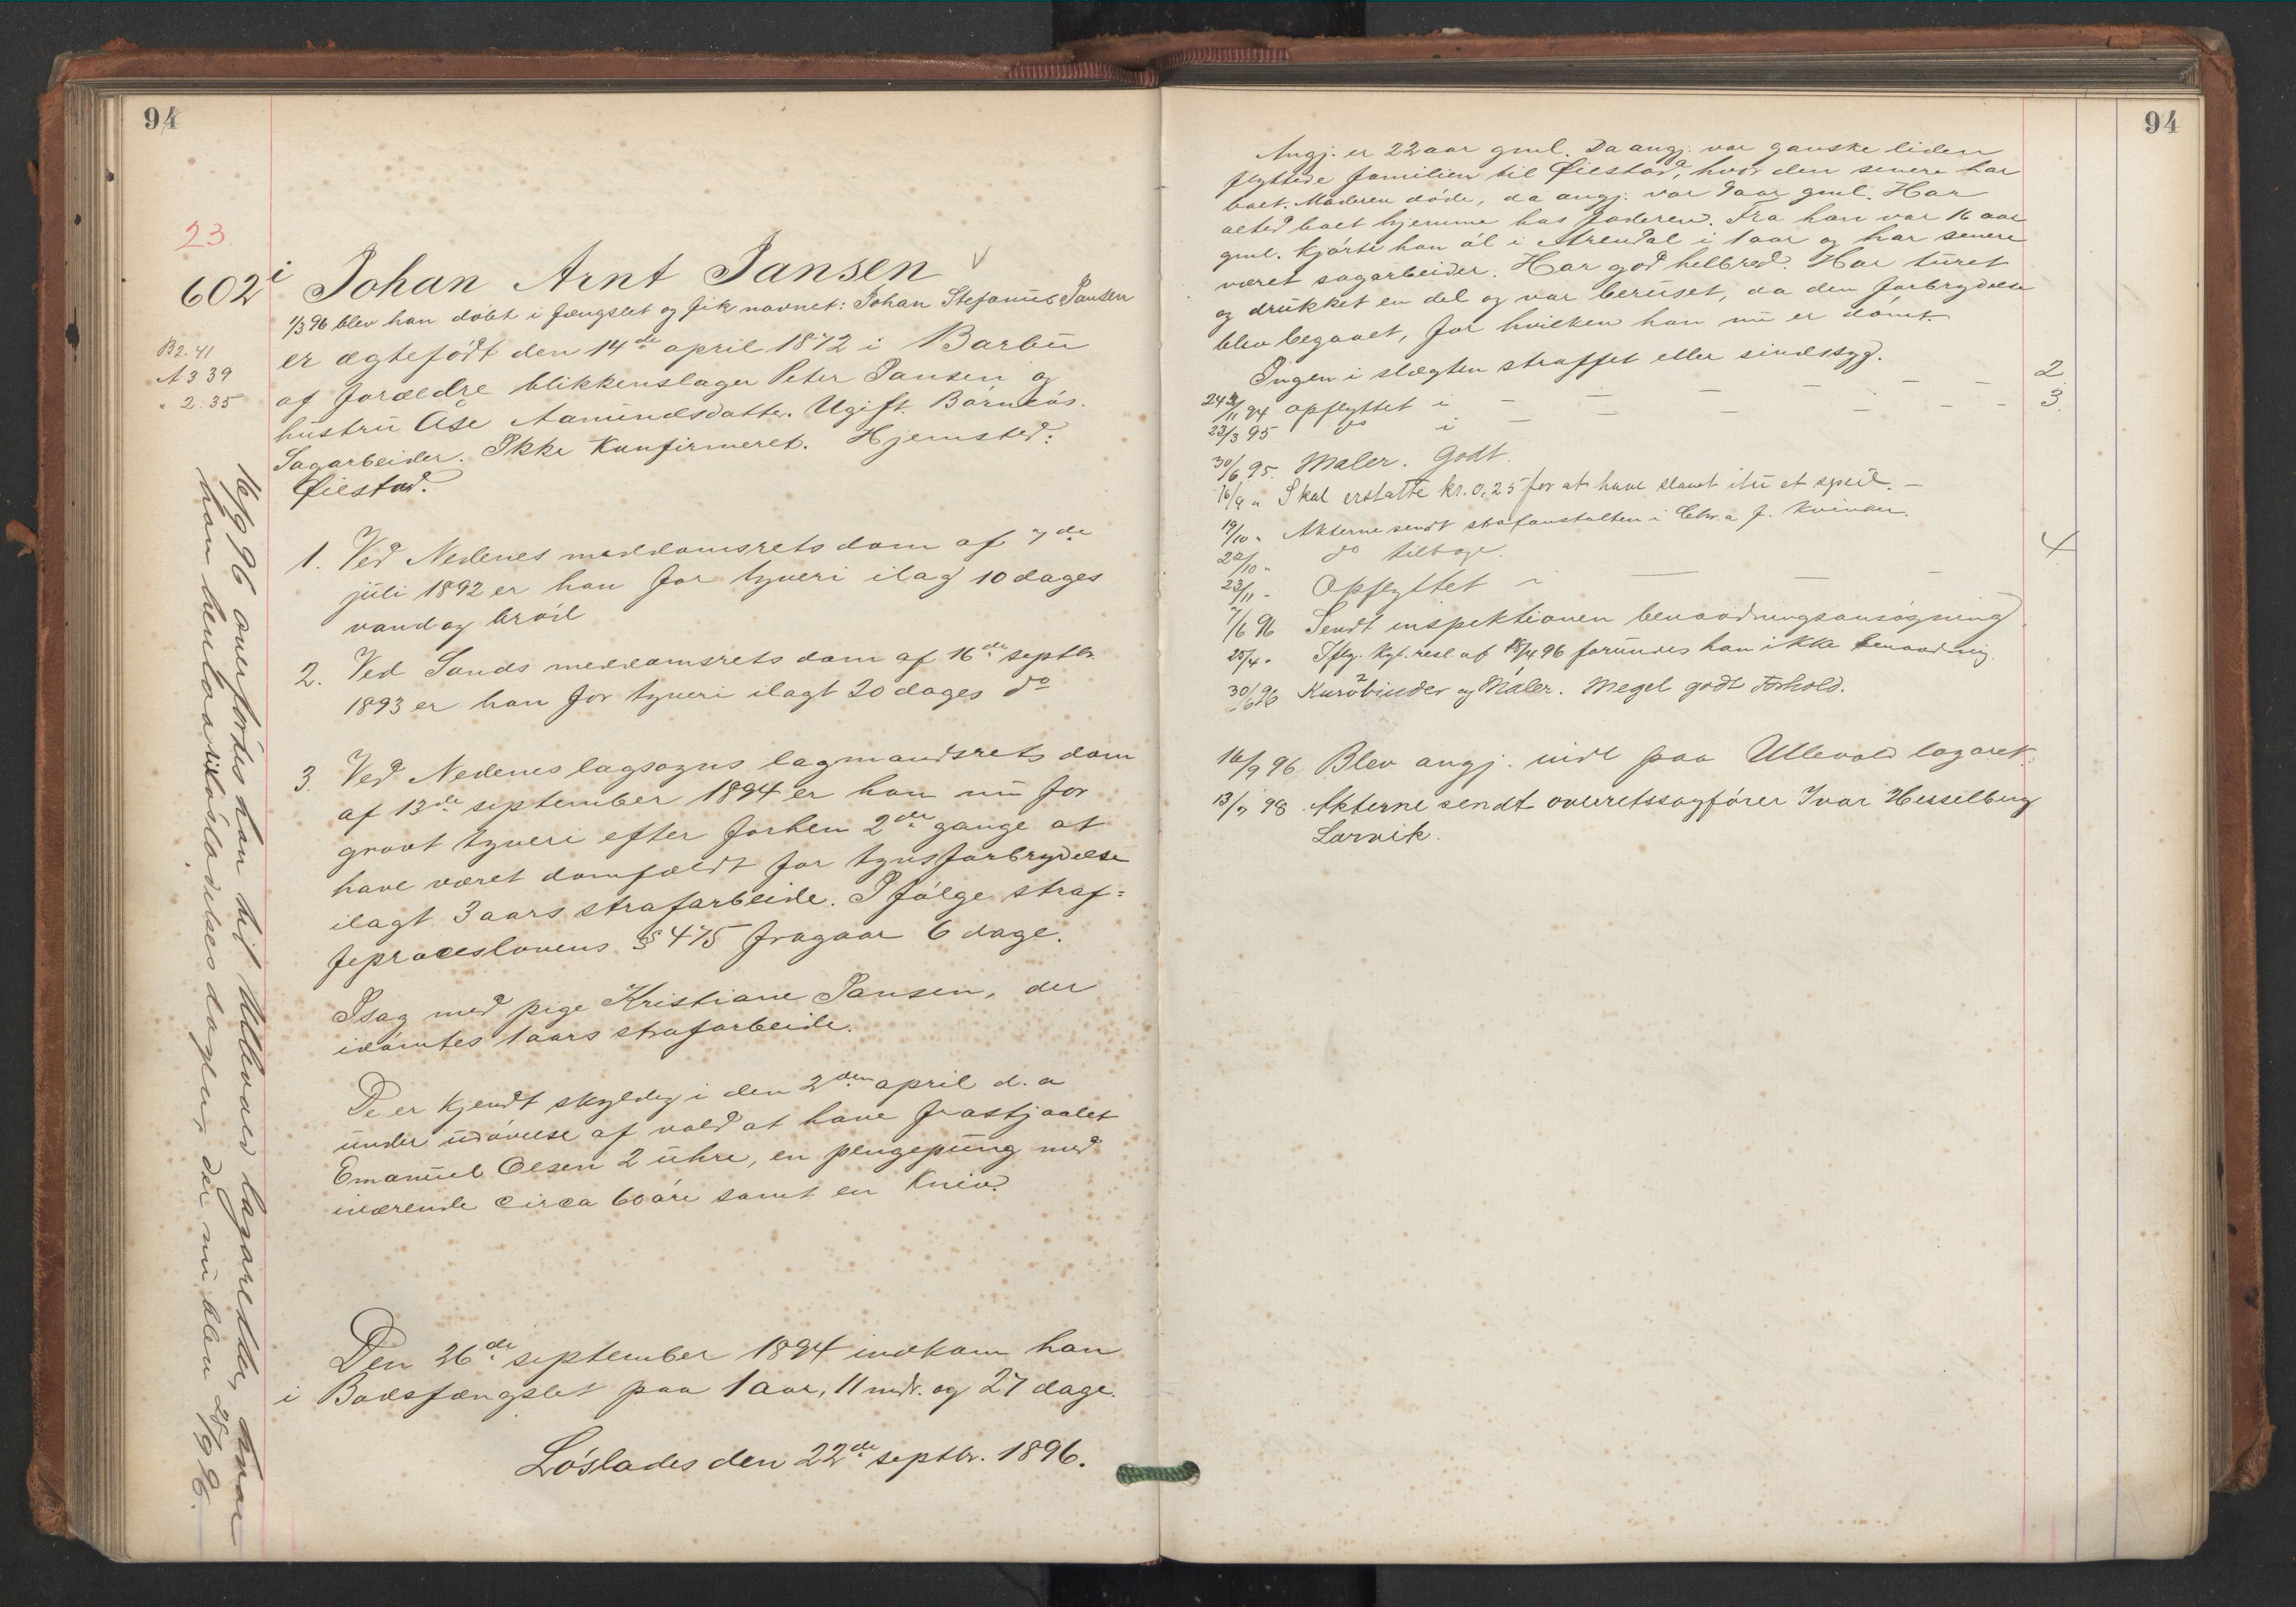 94
23.
602 i Johan Arnt Jansen
1/3 96 blev han döbt i fængslet og fik navnet: Johan Stefanus Jansen
B2. 41
A 3 39
" 2. 35
er ægtefødt den 14de april 1872 i Barbu
af forældre blikkenslager Peter Jansen og
hustru Åse Aamundsdatter. Ugift. Barnløs.
Sagarbeider. Ikke Konfirmeret. Hjemsted:
Øiestad.
1. Ved Nedenes meddomsrets dom af 7de
juli 1892 er han for tyveri ilagt 10 dages
vand og bröd
2. Ved Sands meddomsrets dom af 16de septbr.
1893 er han for tyveri ilagt 20 dages do
3. Ved Nedenes lagsogns lagmandsrets dom
af 13de september 1894 er han nu for
grovt tyveri efter forhen 2de gange at
have været domfældt for tyvsforbrydelse
ilagt 3 aars strafarbeide. I følge straf=
feproceslovens § 475 fragaar 6 dage.
I sag med pige Kristiane Jansen, der
idömtes 1 aars strafarbeide.
De er kjendt skyldig i den 2den april d. a
under udövelse af vold at have frastjaalet
Emanuel Olsen 2 uhre, en pengepung med
iværende circa 60 öre samt en Kniv.
Den 26de september 1894 indkom han
i Bodsfængslet paa 1 aar, 11 mdr. og 27 dage.
Löslades den 22de septbr. 1896.
16/9 96 overførtes han til Ullevold lazarether, hvor
han henlaa til löslade​lses dagen, der nu blev 28/9 96.
94
Angj. er 22 aar gml. Da angj. var ganske liden
flyttede familien til Øiestad, hvor den senere har
boet. Moderen döde, da angj. var 9 aar gml. Har
altid boet hjemme hos faderen. Fra han var 16 aar
gml. Kjörte han öl i Arendal i 1 aar og har senere
været sagarbeider. Har god helbred. Har turet
og drukket en del og var beruset, da den forbrydelse
blev begaaet, for hvilken han nu er dömt.
Ingen i slægten straffet eller sindssyg.
24/11 94 opflyttet i — — — — — 2
23/3 95 do i — — — — — 3.
30/6 95. Maler. Godt.
16/9 " Skal erstatte kr. 0,25 for at have slaaet itu et speil. —
19/10 " Akterne sendt strafanstalten i Chr.a f. Kvinder.
22/10 " do tilbage.
23/11 " Opflyttet i — — — 4
7/6 96 Sendt inspektionen benaadningsansøgning
25/4 " Iflg. kgl. resl. af 18/4 96 forundes han ikke benaadning.
30/6 96 Kurvbinder og Maler. Meget godt Forhold.
16/9 96 Blev angj. indl paa Ullevold lazaret.
13/7 98. Akterne sendt overretssagfører Ivar Hesselberg
Larvik.